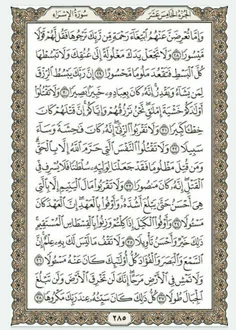 الجزء الخامس عشر
سورة الإسراء
وَإِمَّا تُعْرِضَنَّ عَنْهُمُ ٱبْتِغَآءَ رَحْمَةٍ مِّن رَّبِّكَ تَرْجُوهَا فَقُل لَّهُمْ قَوْلًا
مَّيْسُورًا ٢٨ وَلَا تَجْعَلْ يَدَكَ مَغْلُولَةً إِلَىٰ عُنُقِكَ وَلَا تَبْسُطْهَا
كُلَّ ٱلْبَسْطِ فَتَقْعُدَ مَلُومًا مَّحْسُورًا ٢٩ إِنَّ رَبَّكَ يَبْسُطُ ٱلرِّزْقَ
لِمَن يَشَآءُ وَيَقْدِرُ إِنَّهُۥ كَانَ بِعِبَادِهِۦ خَبِيرًۢا بَصِيرًا ٣٠ وَلَا تَقْتُلُوٓا۟
أَوْلَٰدَكُمْ خَشْيَةَ إِمْلَٰقٍ نَّحْنُ نَرْزُقُهُمْ وَإِيَّاكُمْ إِنَّ قَتْلَهُمْ كَانَ
خِطْـًٔا كَبِيرًا ٣١ وَلَا تَقْرَبُوا۟ ٱلزِّنَىٰٓ إِنَّهُۥ كَانَ فَٰحِشَةً وَسَآءَ
سَبِيلًا ٣٢ وَلَا تَقْتُلُوا۟ ٱلنَّفْسَ ٱلَّتِى حَرَّمَ ٱللَّهُ إِلَّا بِٱلْحَقِّ
وَمَن قُتِلَ مَظْلُومًا فَقَدْ جَعَلْنَا لِوَلِيِّهِۦ سُلْطَٰنًا فَلَا يُسْرِف فِّى
ٱلْقَتْلِ إِنَّهُۥ كَانَ مَنصُورًا ٣٣ وَلَا تَقْرَبُوا۟ مَالَ ٱلْيَتِيمِ إِلَّا بِٱلَّتِى
هِىَ أَحْسَنُ حَتَّىٰ يَبْلُغَ أَشُدَّهُۥ وَأَوْفُوا۟ بِٱلْعَهْدِ إِنَّ ٱلْعَهْدَ كَانَ
مَسْـُٔولًا ٣٤ وَأَوْفُوا۟ ٱلْكَيْلَ إِذَا كِلْتُمْ وَزِنُوا۟ بِٱلْقِسْطَاسِ ٱلْمُسْتَقِيمِ
ذَٰلِكَ خَيْرٌ وَأَحْسَنُ تَأْوِيلًا ٣٥ وَلَا تَقْفُ مَا لَيْسَ لَكَ بِهِۦ عِلْمٌ إِنَّ
ٱلسَّمْعَ وَٱلْبَصَرَ وَٱلْفُؤَادَ كُلُّ أُو۟لَٰٓئِكَ كَانَ عَنْهُ مَسْـُٔولًا ٣٦
وَلَا تَمْشِ فِى ٱلْأَرْضِ مَرَحًا إِنَّكَ لَن تَخْرِقَ ٱلْأَرْضَ وَلَن تَبْلُغَ
ٱلْجِبَالَ طُولًا ٣٧ كُلُّ ذَٰلِكَ كَانَ سَيِّئُهُۥ عِندَ رَبِّكَ مَكْرُوهًا ٣٨
٢٨٥